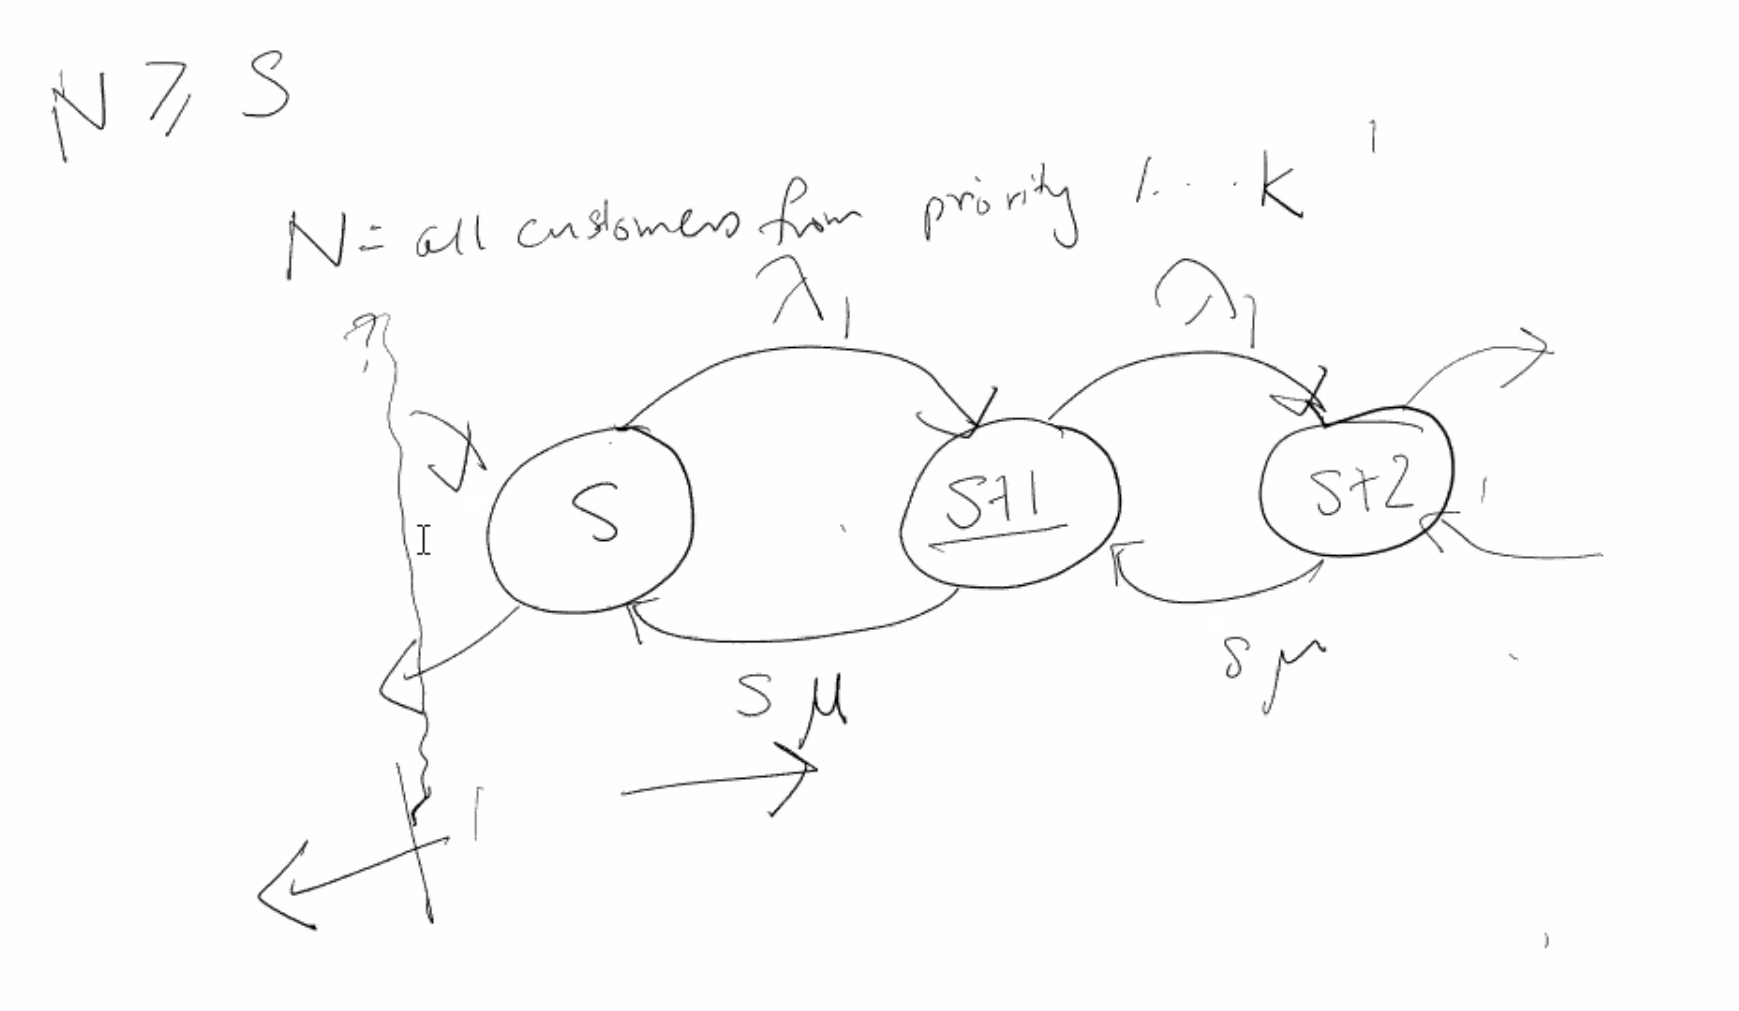 N ⩾ S
N = all customers from priority 1...k
λ1 λ1
?
S S+1 S+2
Sμ Sμ